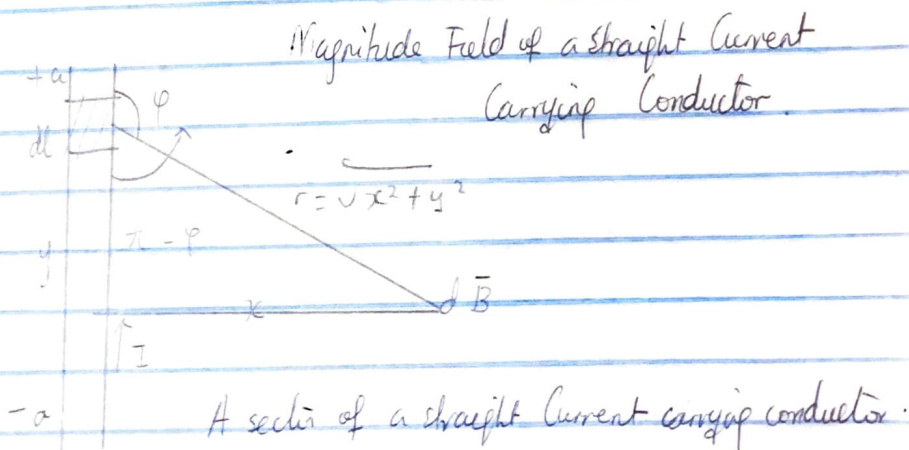 Magnitude Field of a straight Current
Carrying Conductor.
+a
φ
dl
r = √x² + y²
π - φ
y
x
B̄
I
-a
A section of a straight Current carrying conductor.